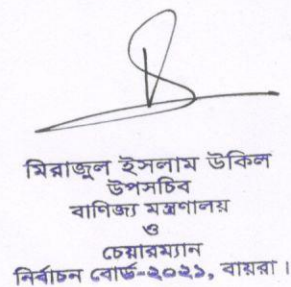 মিরাজুল ইসলাম উকিল
উপসচিব
বাণিজ্য মন্ত্রণালয়
ও
চেয়ারম্যান
নির্বাচন বোর্ড-২০২১, বায়রা ।